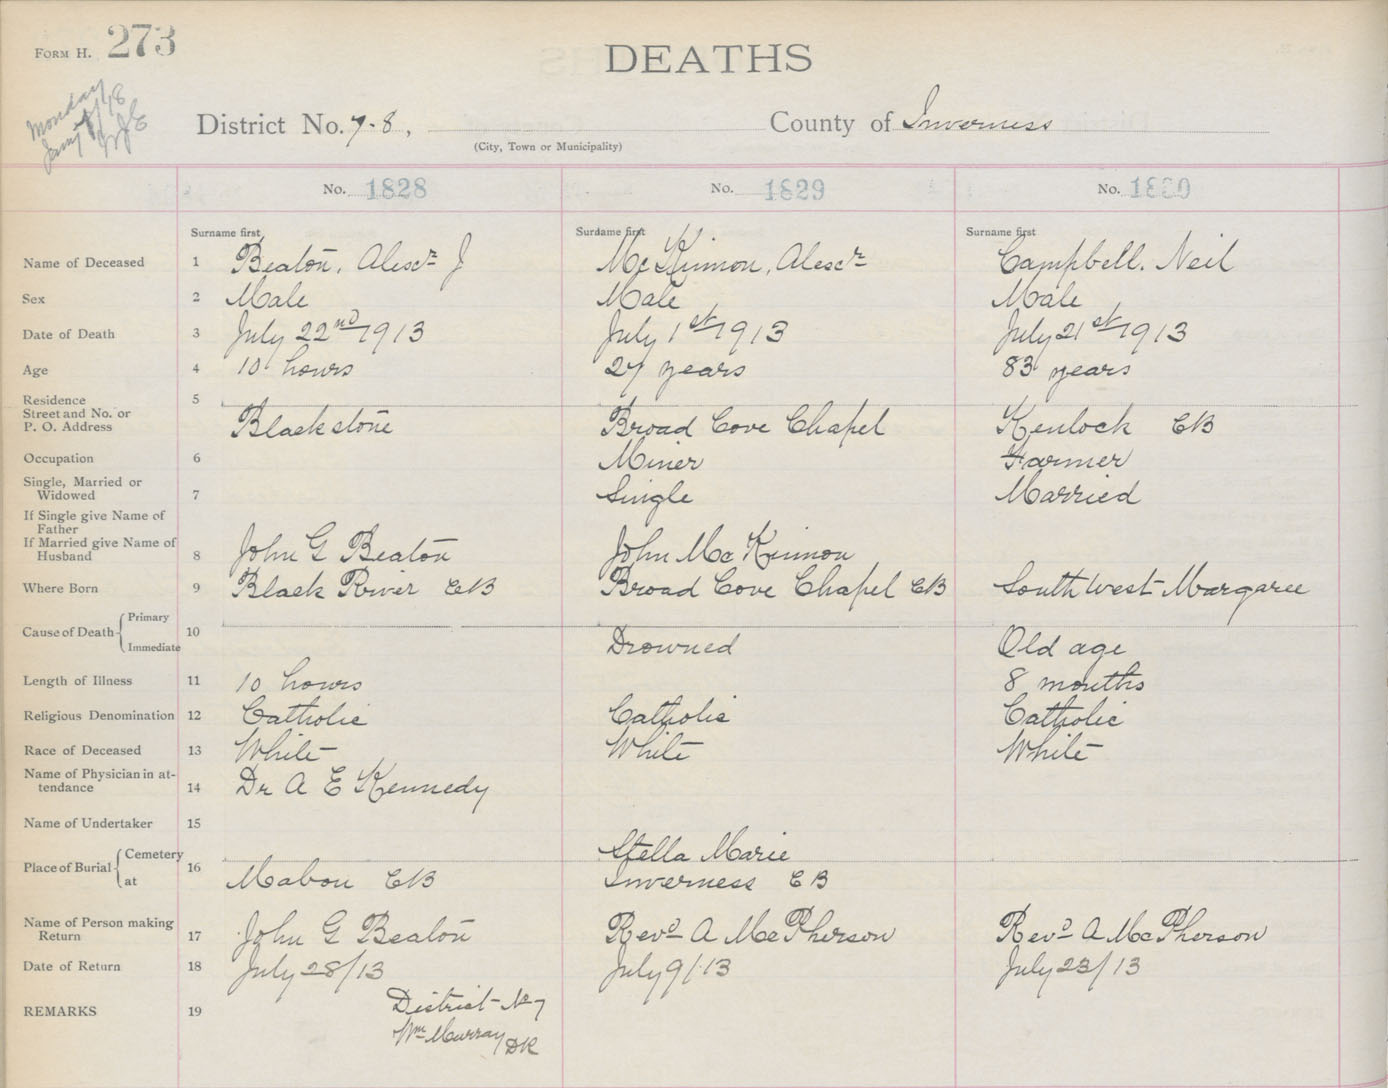 FORM H. 273
DEATHS
Monday
District No. 7-8, County of Inverness
(City, Town or Municipality)
No. 1828 No. 1829 No. 1830
Surname first Surname first Surname first
Name of Deceased 1 Beaton, Alexr J McKinnon, Alexr Campbell, Neil
Sex 2 Male Male Male
Date of Death 3 July 22nd 1913 July 1st 1913 July 21st 1913
Age 4 10 hours 27 years 83 years
Residence 5
Street and No. or
P. O. Address Blackstone Broad Cove Chapel Kenlock CB
Occupation 6 Miner Farmer
Single, Married or
Widowed 7 Single Married
If Single give Name of
Father
If Married give Name of
Husband 8 John G Beaton John McKinnon
Where Born 9 Black River CB Broad Cove Chapel CB South West Margaree
Cause of Death 10 Primary
Immediate Drowned Old age
Length of Illness 11 10 hours 8 months
Religious Denomination 12 Catholic Catholic Catholic
Race of Deceased 13 White White White
Name of Physician in at-
tendance 14 Dr A E Kennedy
Name of Undertaker 15
Place of Burial 16 Cemetery Stella Marie
at Mabou CB Inverness CB
Name of Person making
Return 17 John G Beaton Revd A McPherson Revd A McPherson
Date of Return 18 July 28/13 July 9/13 July 23/13
REMARKS 19 District No 7
Wm Murray DR